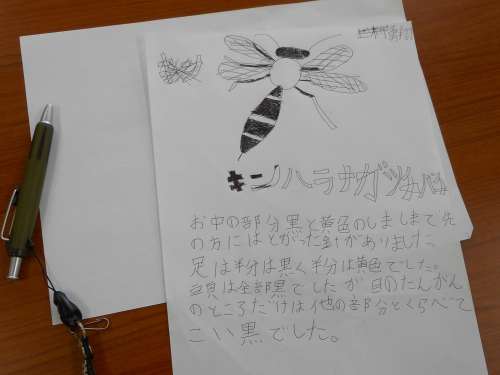 キンハラナガツチバチ
お中の部分黒と黄色のしましまで先
の方にはとがった針がありました。
足は半分は黒く半分は黄色でした。
頭は全部黒でしたが目のたんがん
のところだけは他の部分とくらべて
こい黒でした。